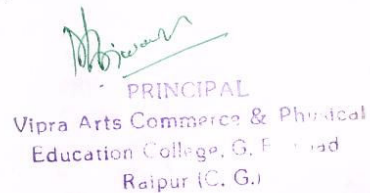 PRINCIPAL
Vipra Arts Commerce & Physical
Education College, G.
Raipur (C. G.)